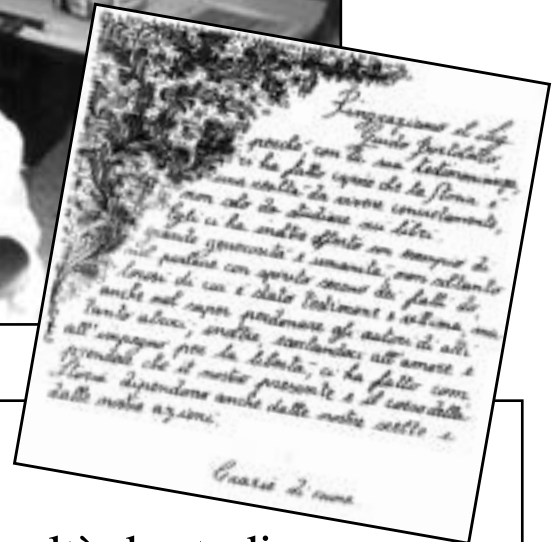 Ringraziamo il sig.
Guido
perché con la sua testimonianza
ci ha fatto capire che la storia è
una realtà da vivere concretamente,
non solo da studiare sui libri.
Egli ci ha inoltre offerto un esempio di
grande generosità e umanità, non soltanto
nel parlare con aperto
di cui è stato testimone e vittima, ma
anche nel saper perdonare gli autori di atti
tanto atroci; inoltre, all'amore e
all'impegno per la libertà, ci ha fatto com
prendere che il nostro presente e il corso della
storia dipendono anche dalle nostre scelte e
dalle nostre azioni.
Grazie di cuore